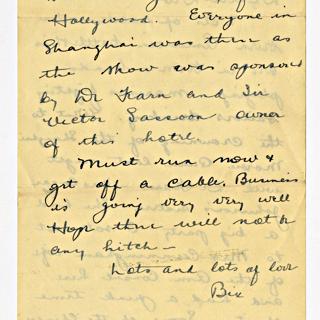 Hollywood. Everyone in
Shanghai was there as
the show was sponsored
by Dr Fearn and Sir
Victor Sassoon owner
of this hotel.
Must run now &
get off a cable. Business
is going very very well
Hope there will not be
any hitch —
Lots and lots of love
Bix